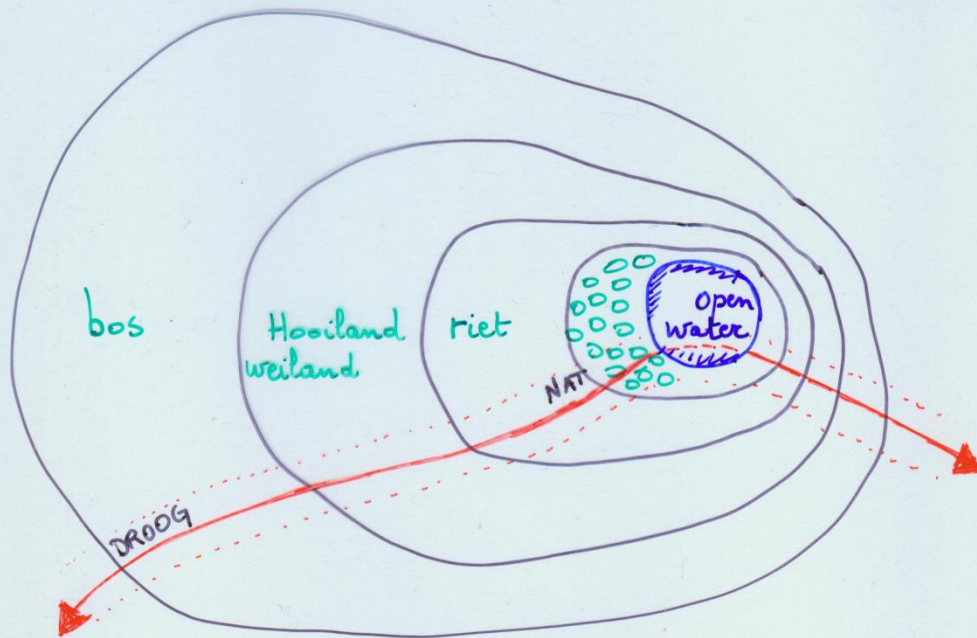 bos
Hooiland
weiland
riet
open
water
NAT
DROOG